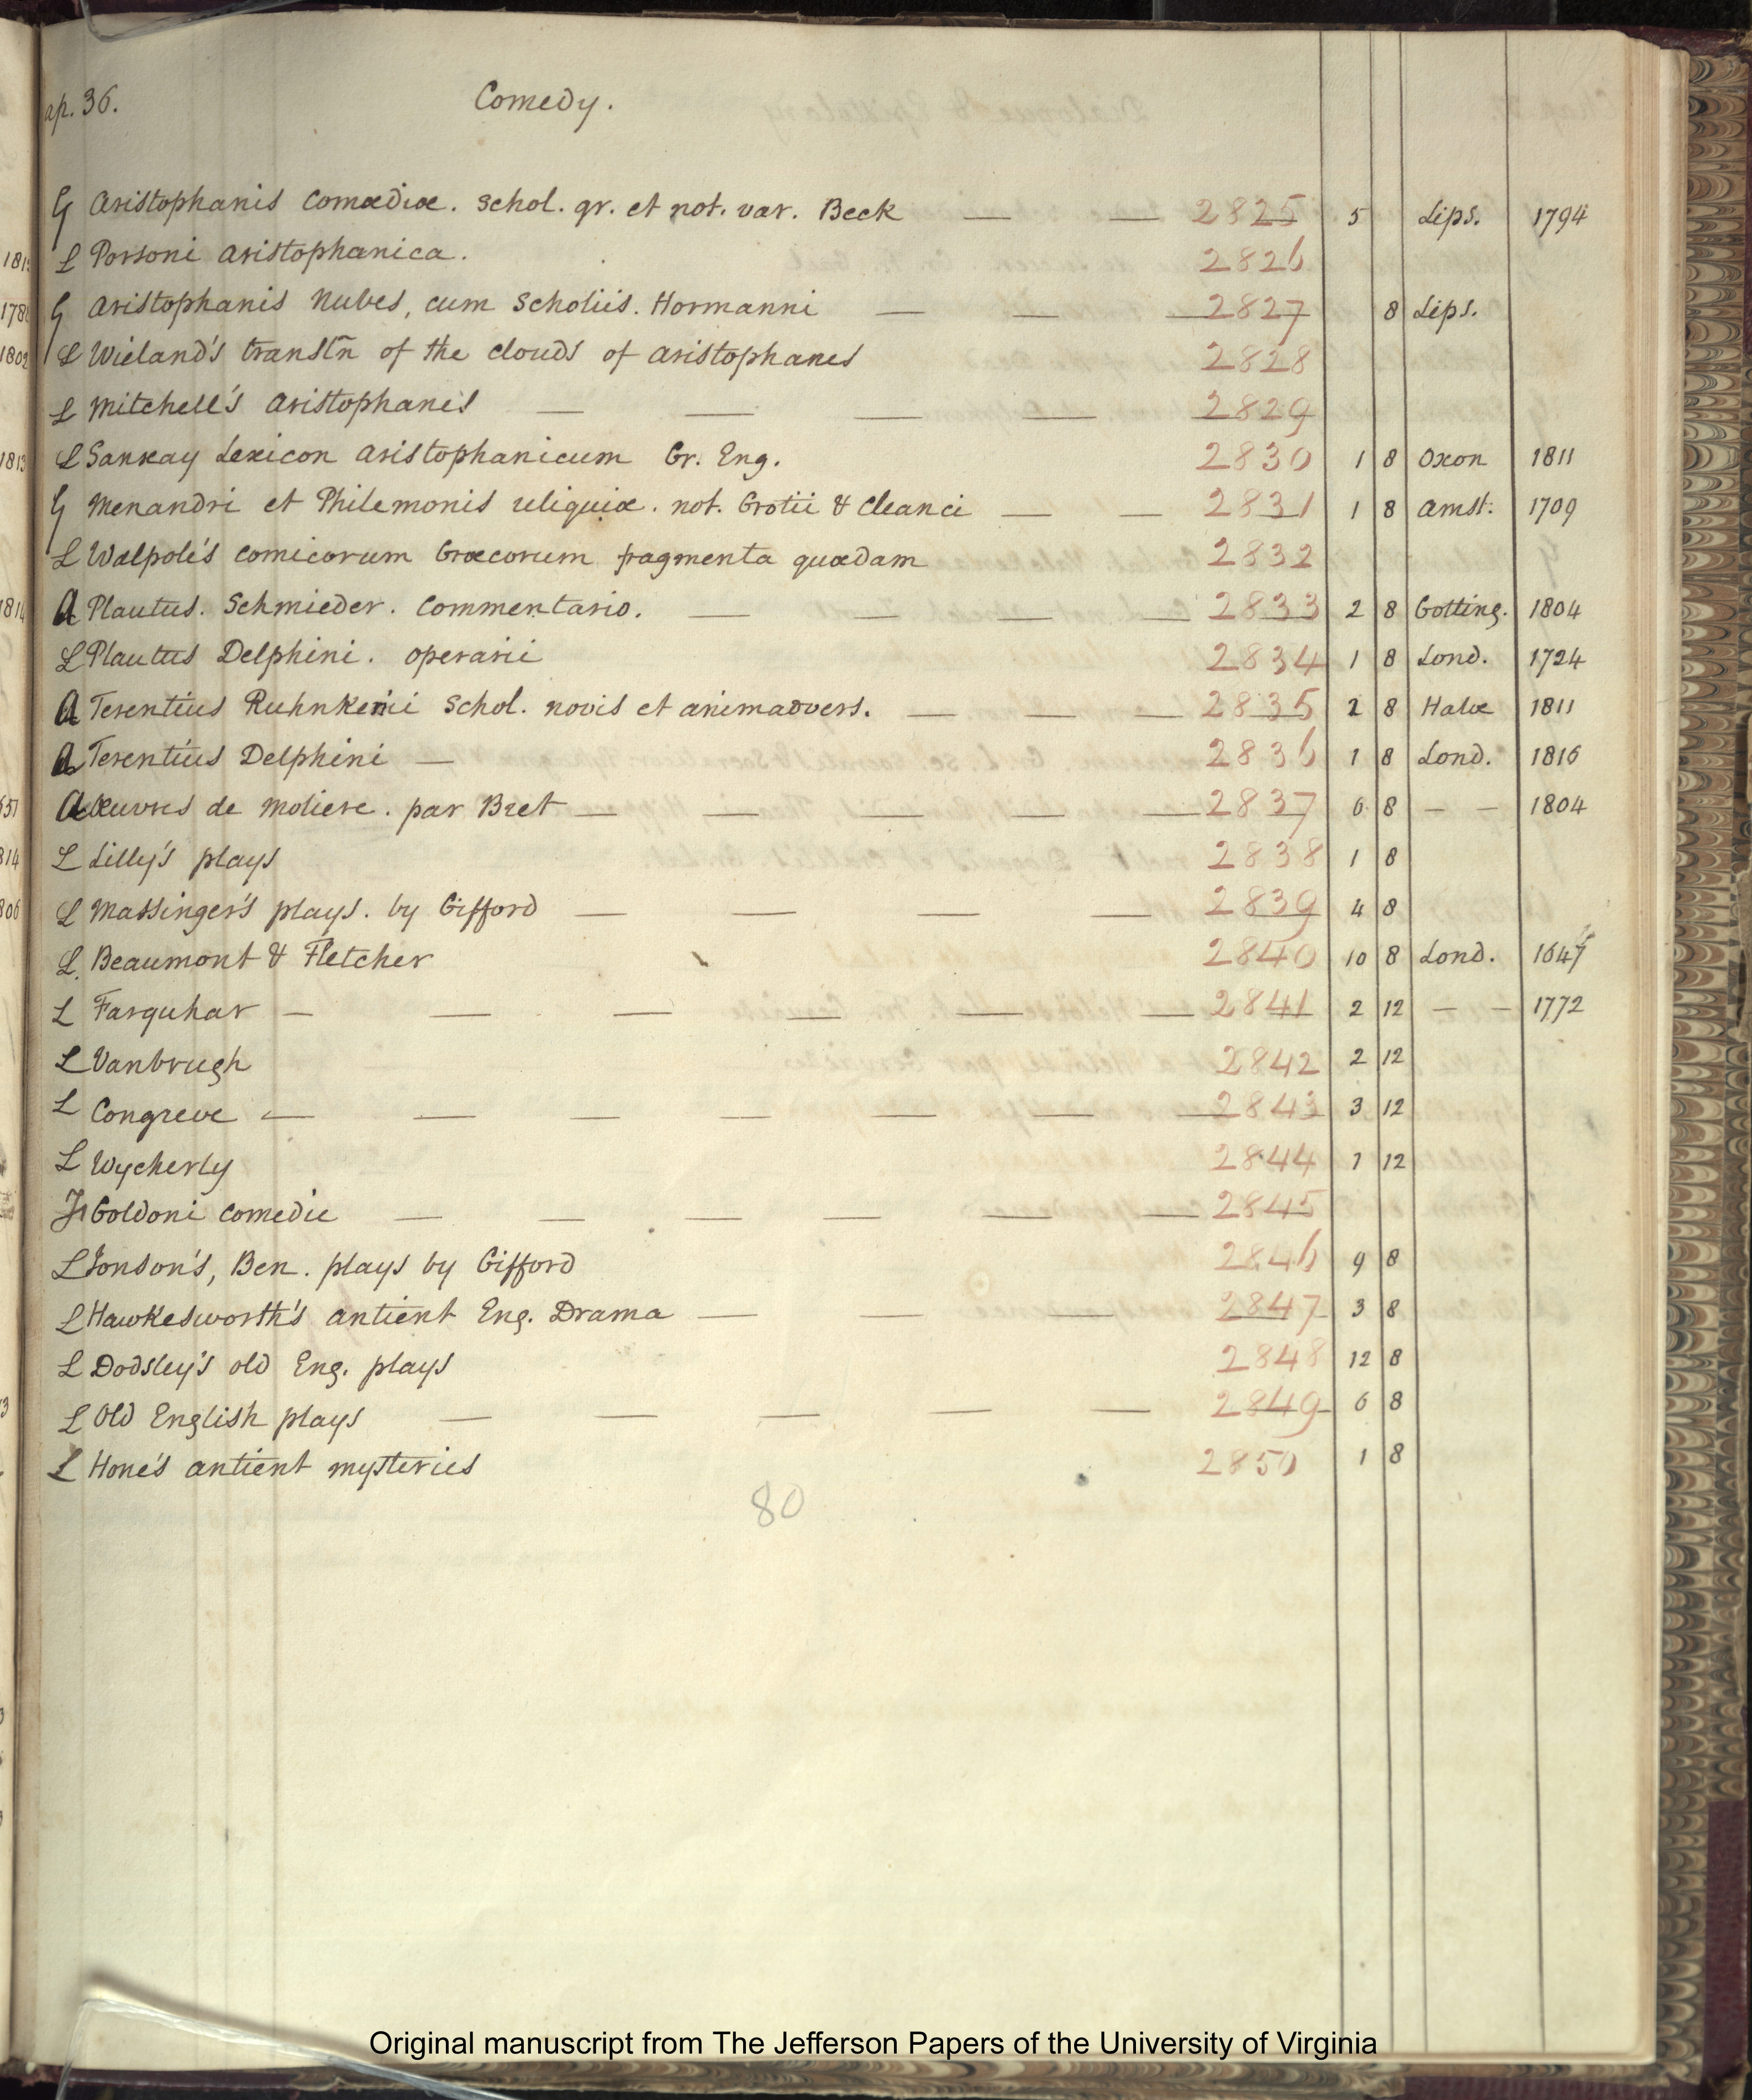 ap. 36. Comedy.
G Aristophanis Comœdiæ. Schol. gr. et not. var. Beck — — 2825 5 Lips. 1794
L Porsoni Aristophanica. 2826
G Aristophanis Nubes, cum Scholiis. Hormanni — — — 2827 8 Lips.
L Wieland's translñ of the clouds of Aristophanes 2828
L Mitchell's Aristophanes — — — — 2829
L Sanxay Lexicon Aristophanicum Gr. Eng. 2830 1 8 Oxon 1811
G Menandri et Philemonis reliquiæ. not. Grotii & Cleanci — — 2831 1 8 Amst. 1709
L Walpole's comicorum Græcorum fragmenta quædam 2832
A Plautus. Schmieder. Commentario. — — — — 2833 2 8 Gotting. 1804
L Plautus Delphini. operarii 2834 1 8 Lond. 1724
A Terentius Ruhnkenii Schol. novis et animadvers. — — — 2835 2 8 Halæ 1811
A Terentius Delphini — 2836 1 8 Lond. 1816
A Œuvres de Moliere. par Bret — — — — — 2837 6 8 — — 1804
L Lilly's plays 2838 1 8
L Massinger's plays. by Gifford — — — — 2839 4 8
L Beaumont & Fletcher 2840 10 8 Lond. 1647
L Farquhar — — — — — — 2841 2 12 — — 1772
L Vanbrugh 2842 2 12
L Congreve — — — — — — — 2843 3 12
L Wycherly 2844 1 12
It Goldoni comedie — — — — — — 2845
L Jonson's, Ben. plays by Gifford 2846 9 8
L Hawkesworth's antient Eng. Drama — — — 2847 3 8
L Dodsley's old Eng. plays 2848 12 8
L Old English plays — — — — — 2849 6 8
L Hone's antient mysteries 2850 1 8
80
Original manuscript from The Jefferson Papers of the University of Virginia